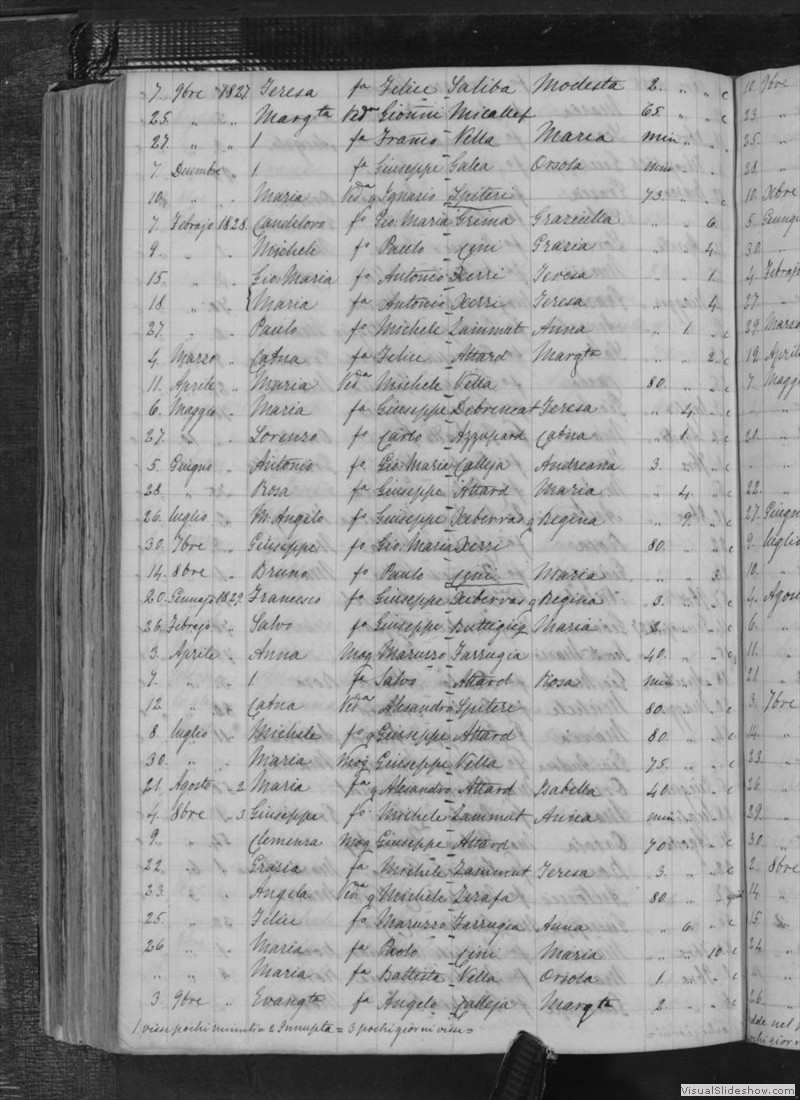 7. 9bre 1827. Teresa fa Felice Saliba Modesta 2. " " c
25. " " Margta Veda Gionni Micallef 65. " " c
27. " " 1 fa Franco Vella Maria min " "
7 Dicembre " 1. fa Giuseppe Galea Orsola min " "
10. " " Maria Veda q Ignazio Spiteri 73. " " c
7 Febrajo 1828. Candeloro fo Gio. Maria Grima Graziella " " 6.
9. " " Michele fo Paulo Cini Grazia " " 4.
15. " " Gio. Maria fo Antonio Xerri Teresa " " 1.
18. " " Maria fa Antonio Xerri Teresa " " 4.
27. " " Paulo fo Michele Zammut Anna " 1. " c
4. Marzo " Catna fa Felice Attard Margta " " 2. c
11. Aprile " Maria Veda Michele Vella 80. " " c
6. Maggio " Maria fa Giuseppe Debrincat Teresa " 4. " c
27. " " Lorenzo fo Carlo Azzupard Catna " 1. " c
5. Giugno " Antonio fo Gio. Maria Calleja Andreana 3. " " c
28. " " Rosa fa Giuseppe Attard Maria " 4. " c
26. luglio " M. Angelo fo Giuseppe Xeberras q Regina " 9. " c
30. 7bre " Giuseppe fo Gio. Maria Xerri 80. " " c
14. 8bre " Bruno fo Paulo Cini Maria " " 3.
20. Gennajo 1829. Francesco fo Giuseppe Xeberras q Regina 3. " " c
26. Febrajo " Salvo fo Giuseppe Buttigieg Maria 2. " " c
3. Aprile " Anna Mog Maruzzo Farrugia 40. " " c
7. " " 1 fa Salvo Attard Rosa min " "
12. " " Catna Veda Alesandro Spiteri 80. " " c
8. luglio " Michele fo q Giuseppe Attard 80. " " c
30. " " Maria Mog Giuseppe Vella 75. " " c
21. Agosto " 2 Maria fa q Alesandro Attard Isabella 40. " " c
4. 8bre " 3 Giuseppe fo Michele Zammut Anna min " " c
9. " " Clemenza Mog Giuseppe Attard 70 " " c
22. " " Grazia fa Michele Zammut Teresa 3. " " c
23. " " Angela Veda q Michele Zerafa 80. " "
25. " " Felice fo Maruzzo Farrugia Anna " 6. " c
26 " " Maria fa Paolo Cini Maria " " 10. c
" " " Maria fa Battista Vella Orsola 1 " " c
3. 9bre " Evangta fa Angelo Calleja Margta 2 " " c
1. visse pochi minuti = 2 Innupta = 3 pochi giorni visse =
12. 9bre
23. "
25. "
28. "
10. Xbre
30. "
27. "
29. Marzo
12 Aprile
7. Maggio
20. "
22. "
27. Giugn
9. luglio
10. "
4. Agos
6. "
11. "
21. "
3. 7bre
14. "
23. "
26. "
29. "
30. "
2. 8bre
14. "
15. "
24. "
26. "
VisualSlideshow.com